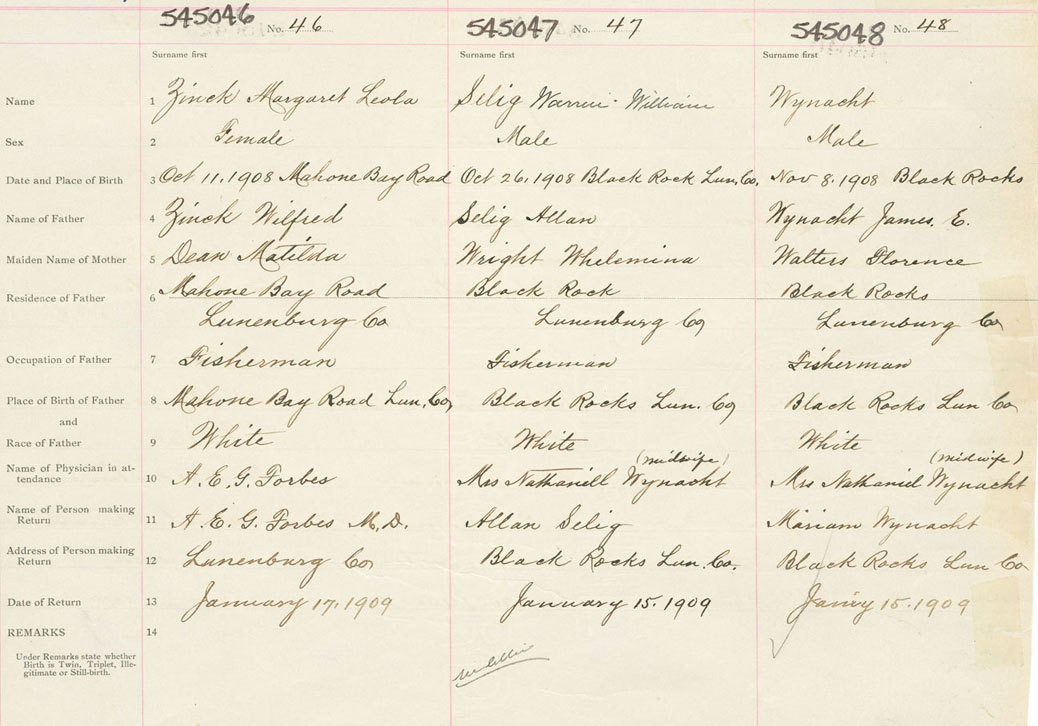 545046 No. 46 545047 No. 47 545048 No. 48
Surname first Surname first Surname first
Name 1 Zinck Margaret Leola Selig Warren William Wynacht
Sex 2 Female Male Male
Date and Place of Birth 3 Oct 11, 1908 Mahone Bay Road Oct 26, 1908 Black Rock Lun, Co, Nov 8, 1908 Black Rocks
Name of Father 4 Zinck Wilfred Selig Allan Wynacht James. E.
Maiden Name of Mother 5 Dean Matilda Wright Whelemina Walters Florence
Residence of Father 6 Mahone Bay Road Black Rock Black Rocks
Lunenburg Co Lunenburg Co Lunenburg Co
Occupation of Father 7 Fisherman Fisherman Fisherman
Place of Birth of Father 8 Mahone Bay Road Lun, Co, Black Rocks Lun. Co Black Rocks Lun Co
and
Race of Father 9 White White White
(midwife) (midwife)
Name of Physician in at-
tendance 10 A. E. G. Forbes Mrs Nathaniell Wynacht Mrs Nathaniel Wynacht
Name of Person making
Return 11 A. E. G. Forbes M.D. Allan Selig Miriam Wynacht
Address of Person making
Return 12 Lunenburg Co Black Rocks Lun. Co. Black Rocks Lun Co
Date of Return 13 January 17, 1909 January 15, 1909 Janry 15, 1909
REMARKS 14
Under Remarks state whether
Birth is Twin, Triplet, Ille-
gitimate or Still-birth.